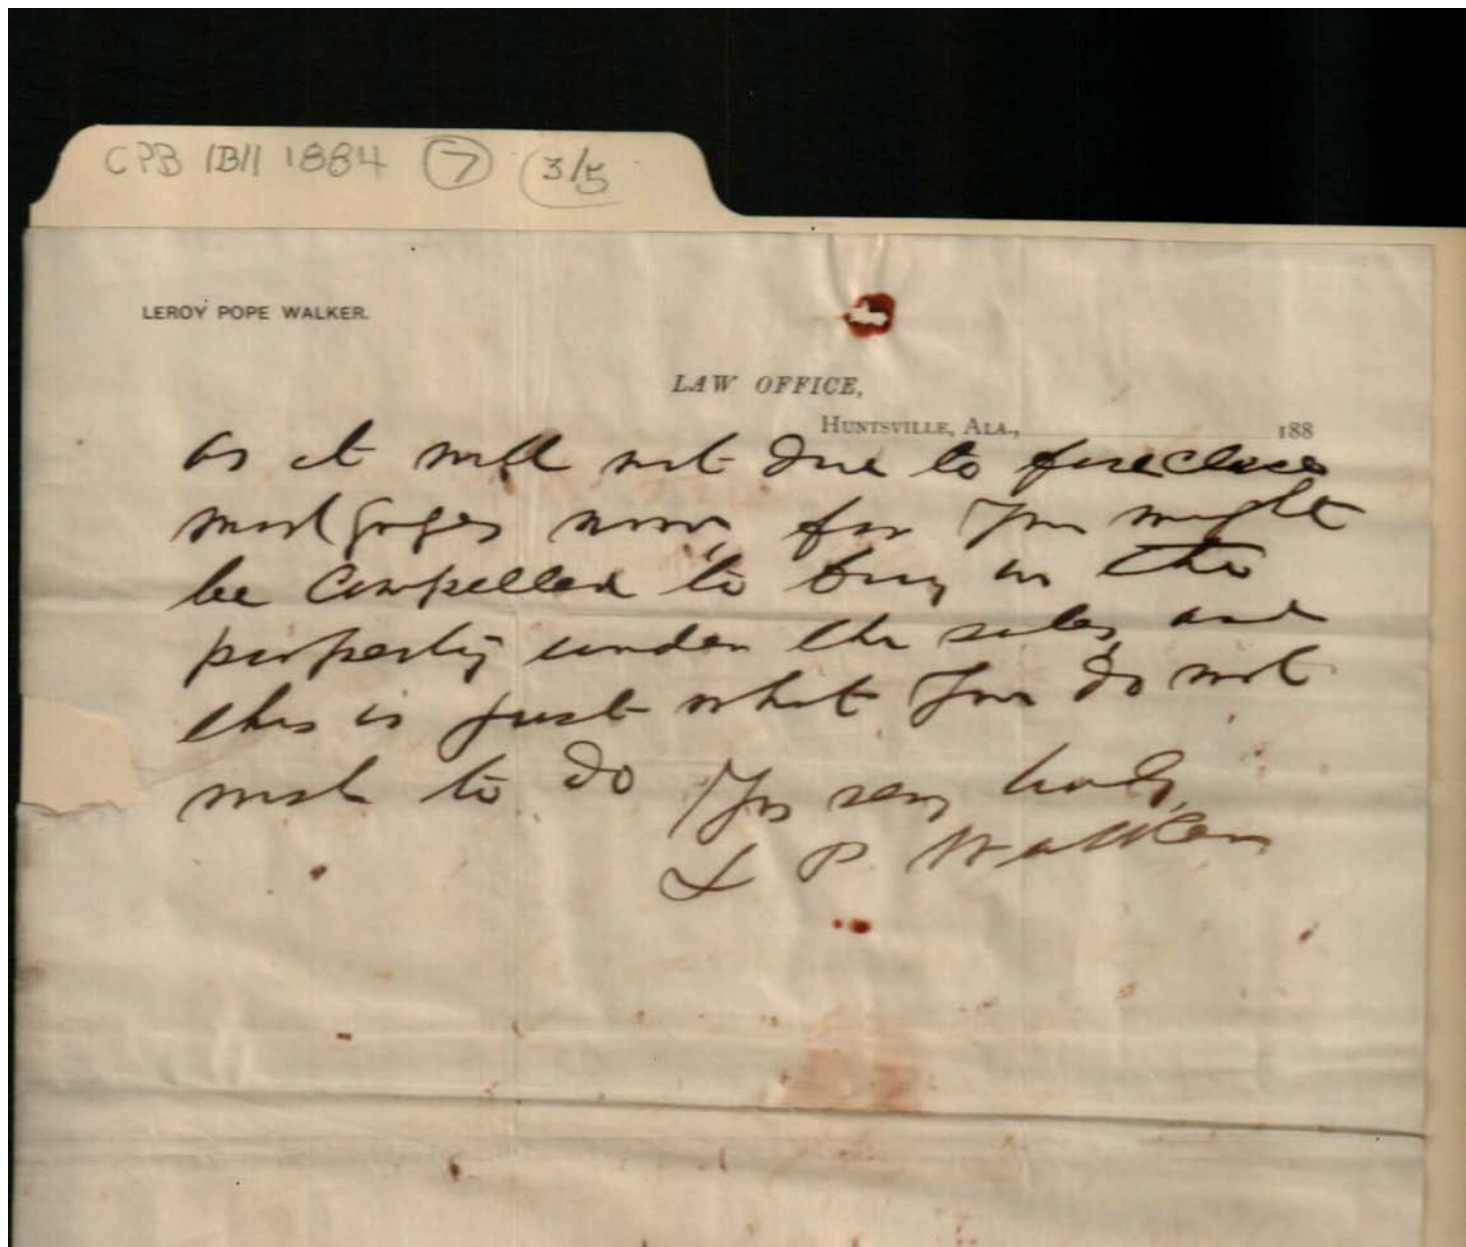 CPB IBII 1884 7 3/5
LEROY POPE WALKER.
LAW OFFICE,
HUNTSVILLE, ALA., 188
as it will not due to foreclose
mortgages now, for you might
be compelled to buy in the
property under the sales, and
this is just what you do not
wish to do Yrs very truly,
L P Walker